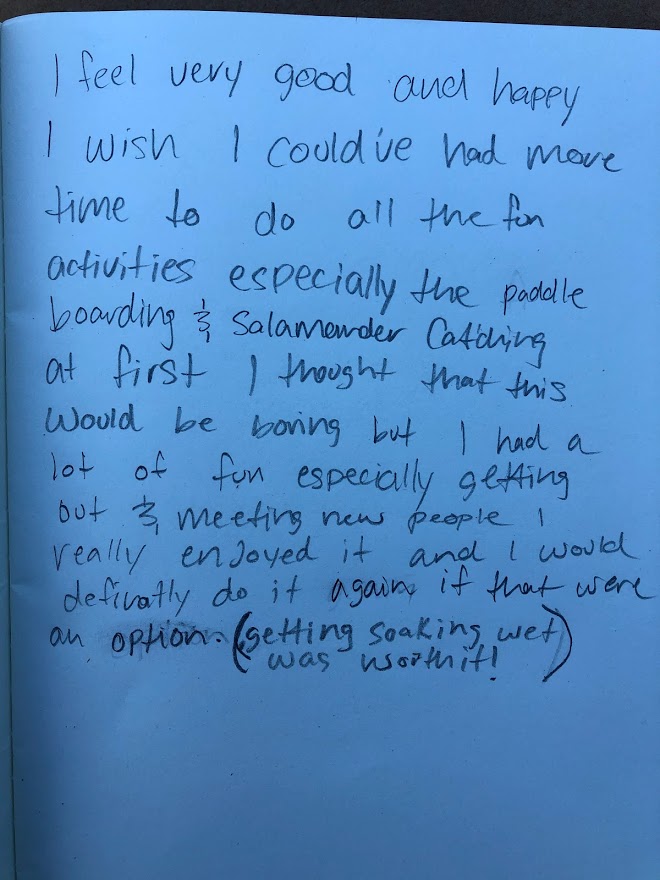 I feel very good and happy
I wish I could've had more
time to do all the fun
activities especially the paddle
boarding & Salamander Catching
at first I thought that this
would be boring but I had a
lot of fun especially getting
out & meeting new people I
really enjoyed it and I would
definatly do it again if that were
an option. (getting soaking wet
was worth it!)